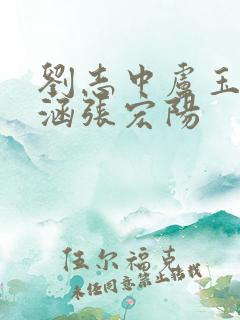 劉志中盧玉
涵張宏陽
伍尔福克
未经同意禁止转载